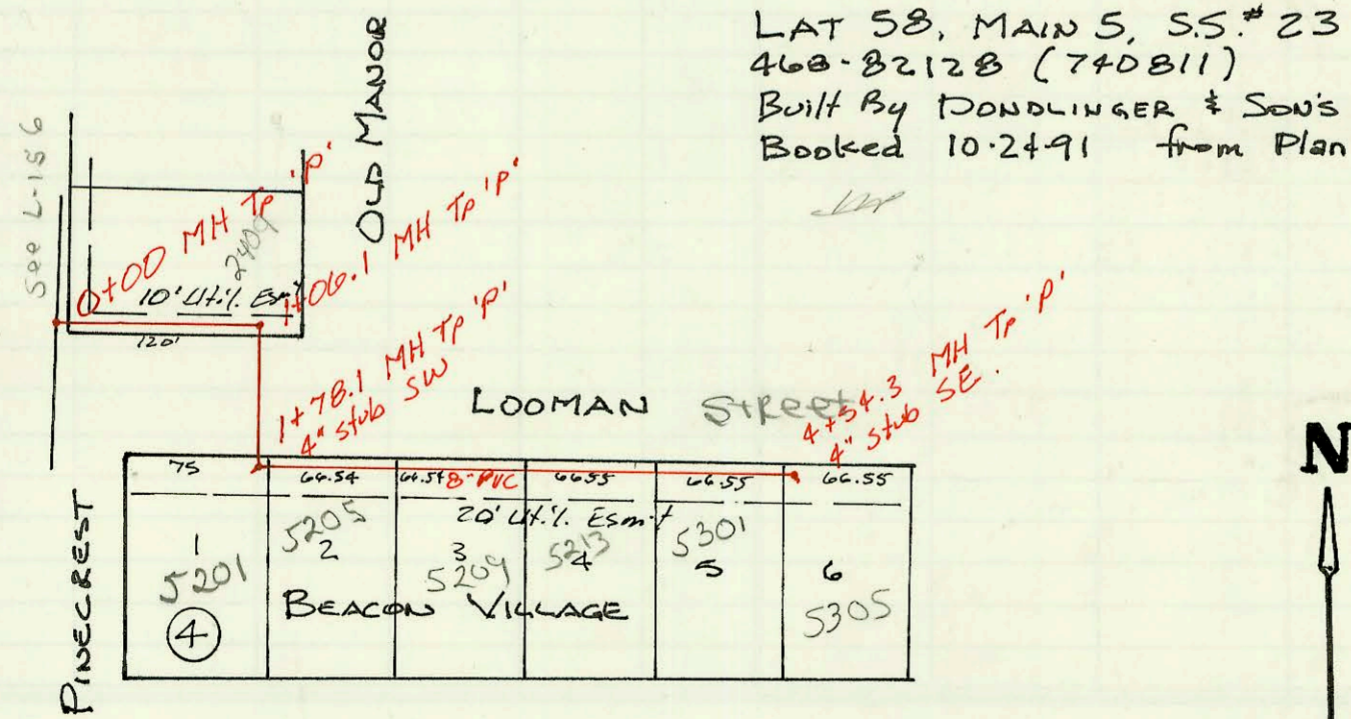 LAT 58, MAIN 5, S.S. # 23
468-82128 (740811)
Built By DONDLINGER & SON'S
Booked 10-24-91 from Plan
See L-186
OLD MANOR
0+00 MH Tp 'P'
2409
10' Util. Esm't
1+06.1 MH Tp 'P'
120'
1+78.1 MH Tp 'P'
4" stub SW
LOOMAN Street
4+54.3 MH Tp 'P'
4" stub SE.
N
PINECREST
75
66.54
66.54
8" PVC
66.55
66.55
66.55
20' Util. Esm't
1
5201
4
5205
2
3
5209
5213
4
5301
5
6
5305
BEACON VILLAGE